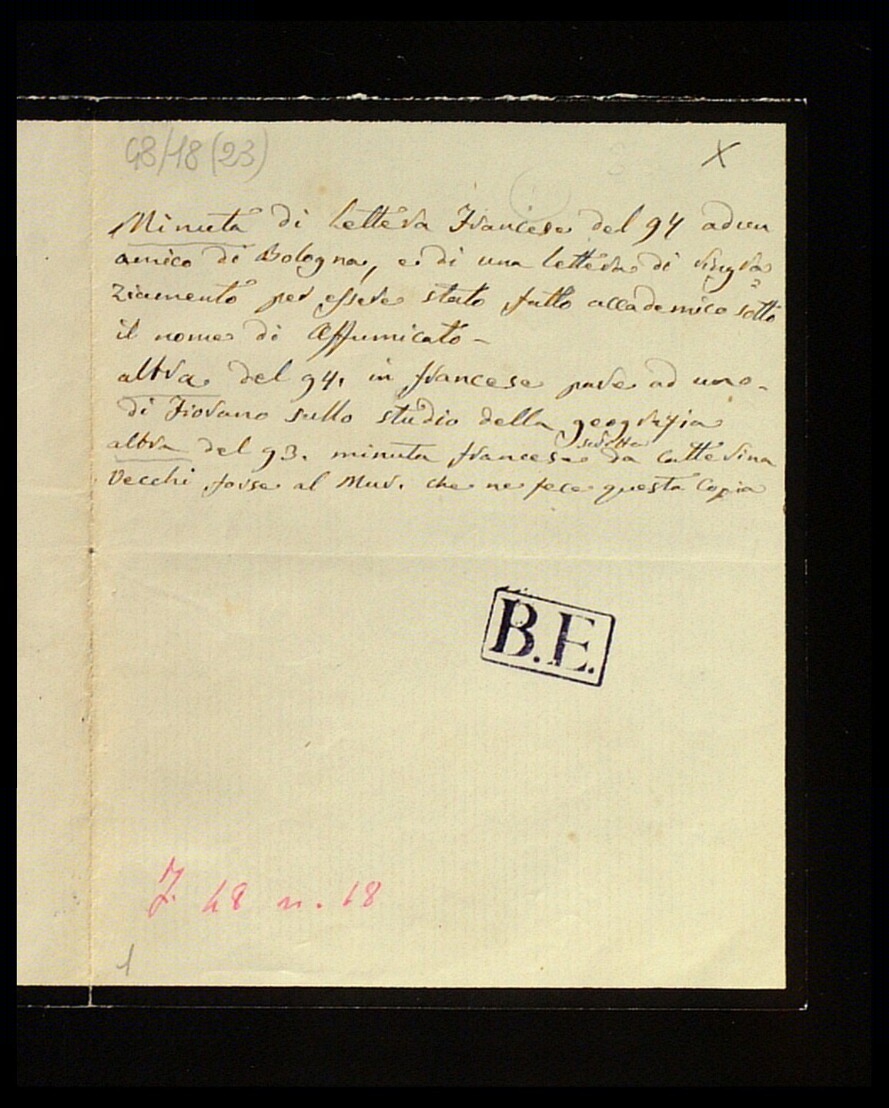 48/18 (23)
X
Minuta di lettera Francese del 94 ad un
amico di Bologna, e di una lettera di ringra=
ziamento per essere stato fatto accademico sotto
il nome di Affumicato -
altra del 94. in francese pure ad uno
di Fiorano sullo studio della geografia
altra del 93. minuta francese scritta da Catterina
Vecchi forse al Mur. che ne fece questa Copia
B.E.
F. 48 n. 18
1